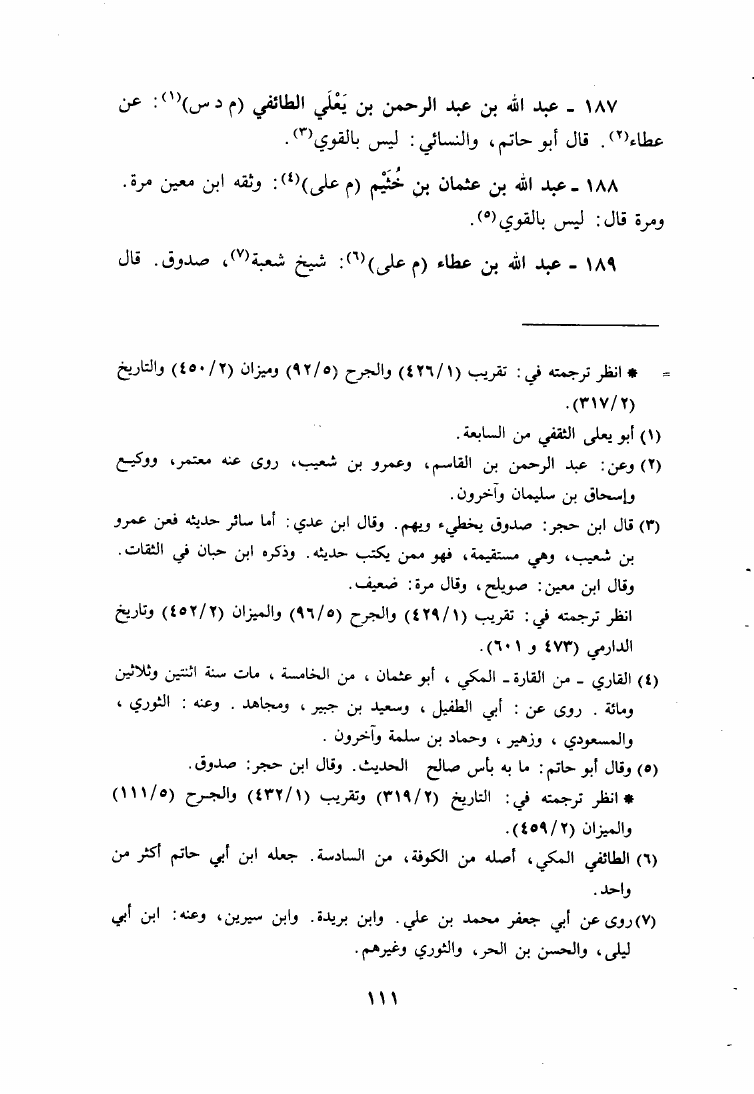 ١٨٧ - عبد الله بن عبد الرحمن بن يَعْلَي الطائفي (م د س)(١): عن
عطاء(٢). قال أبو حاتم، والنسائي: ليس بالقوي(٣).
١٨٨ - عبد الله بن عثمان بن خُثَيْم (م على)(٤): وثقه ابن معين مرة.
ومرة قال: ليس بالقوي(٥).
١٨٩ - عبد الله بن عطاء (م على)(٦): شيخ شعبة(٧)، صدوق. قال
= * انظر ترجمته في: تقريب (٤٢٦/١) والجرح (٩٢/٥) وميزان (٤٥٠/٢) والتاريخ
(٣١٧/٢).
(١) أبو يعلى الثقفي من السابعة.
(٢) وعن: عبد الرحمن بن القاسم، وعمرو بن شعيب، روى عنه معتمر، ووكيع
وإسحاق بن سليمان وآخرون.
(٣) قال ابن حجر: صدوق يخطيء ويهم. وقال ابن عدي: أما سائر حديثه فعن عمرو
بن شعيب، وهي مستقيمة، فهو ممن يكتب حديثه. وذكره ابن حبان في الثقات.
وقال ابن معين: صويلح، وقال مرة: ضعيف.
انظر ترجمته في: تقريب (٤٢٩/١) والجرح (٩٦/٥) والميزان (٤٥٢/٢) وتاريخ
الدارمي (٤٧٣ و ٦٠١).
(٤) القاري - من القارة - المكي ، أبو عثمان ، من الخامسة ، مات سنة اثنتين وثلاثين
ومائة . روى عن : أبي الطفيل ، وسعيد بن جبير ، ومجاهد . وعنه : الثوري ،
والمسعودي ، وزهير ، وحماد بن سلمة وآخرون .
(٥) وقال أبو حاتم: ما به بأس صالح الحديث. وقال ابن حجر: صدوق.
* انظر ترجمته في: التاريخ (٣١٩/٢) وتقريب (٤٣٢/١) والجرح (١١١/٥)
والميزان (٤٥٩/٢).
(٦) الطائفي المكي، أصله من الكوفة، من السادسة. جعله ابن أبي حاتم أكثر من
واحد.
(٧) روى عن أبي جعفر محمد بن علي. وابن بريدة. وابن سيرين، وعنه: ابن أبي
ليلى، والحسن بن الحر، والثوري وغيرهم.
١١١